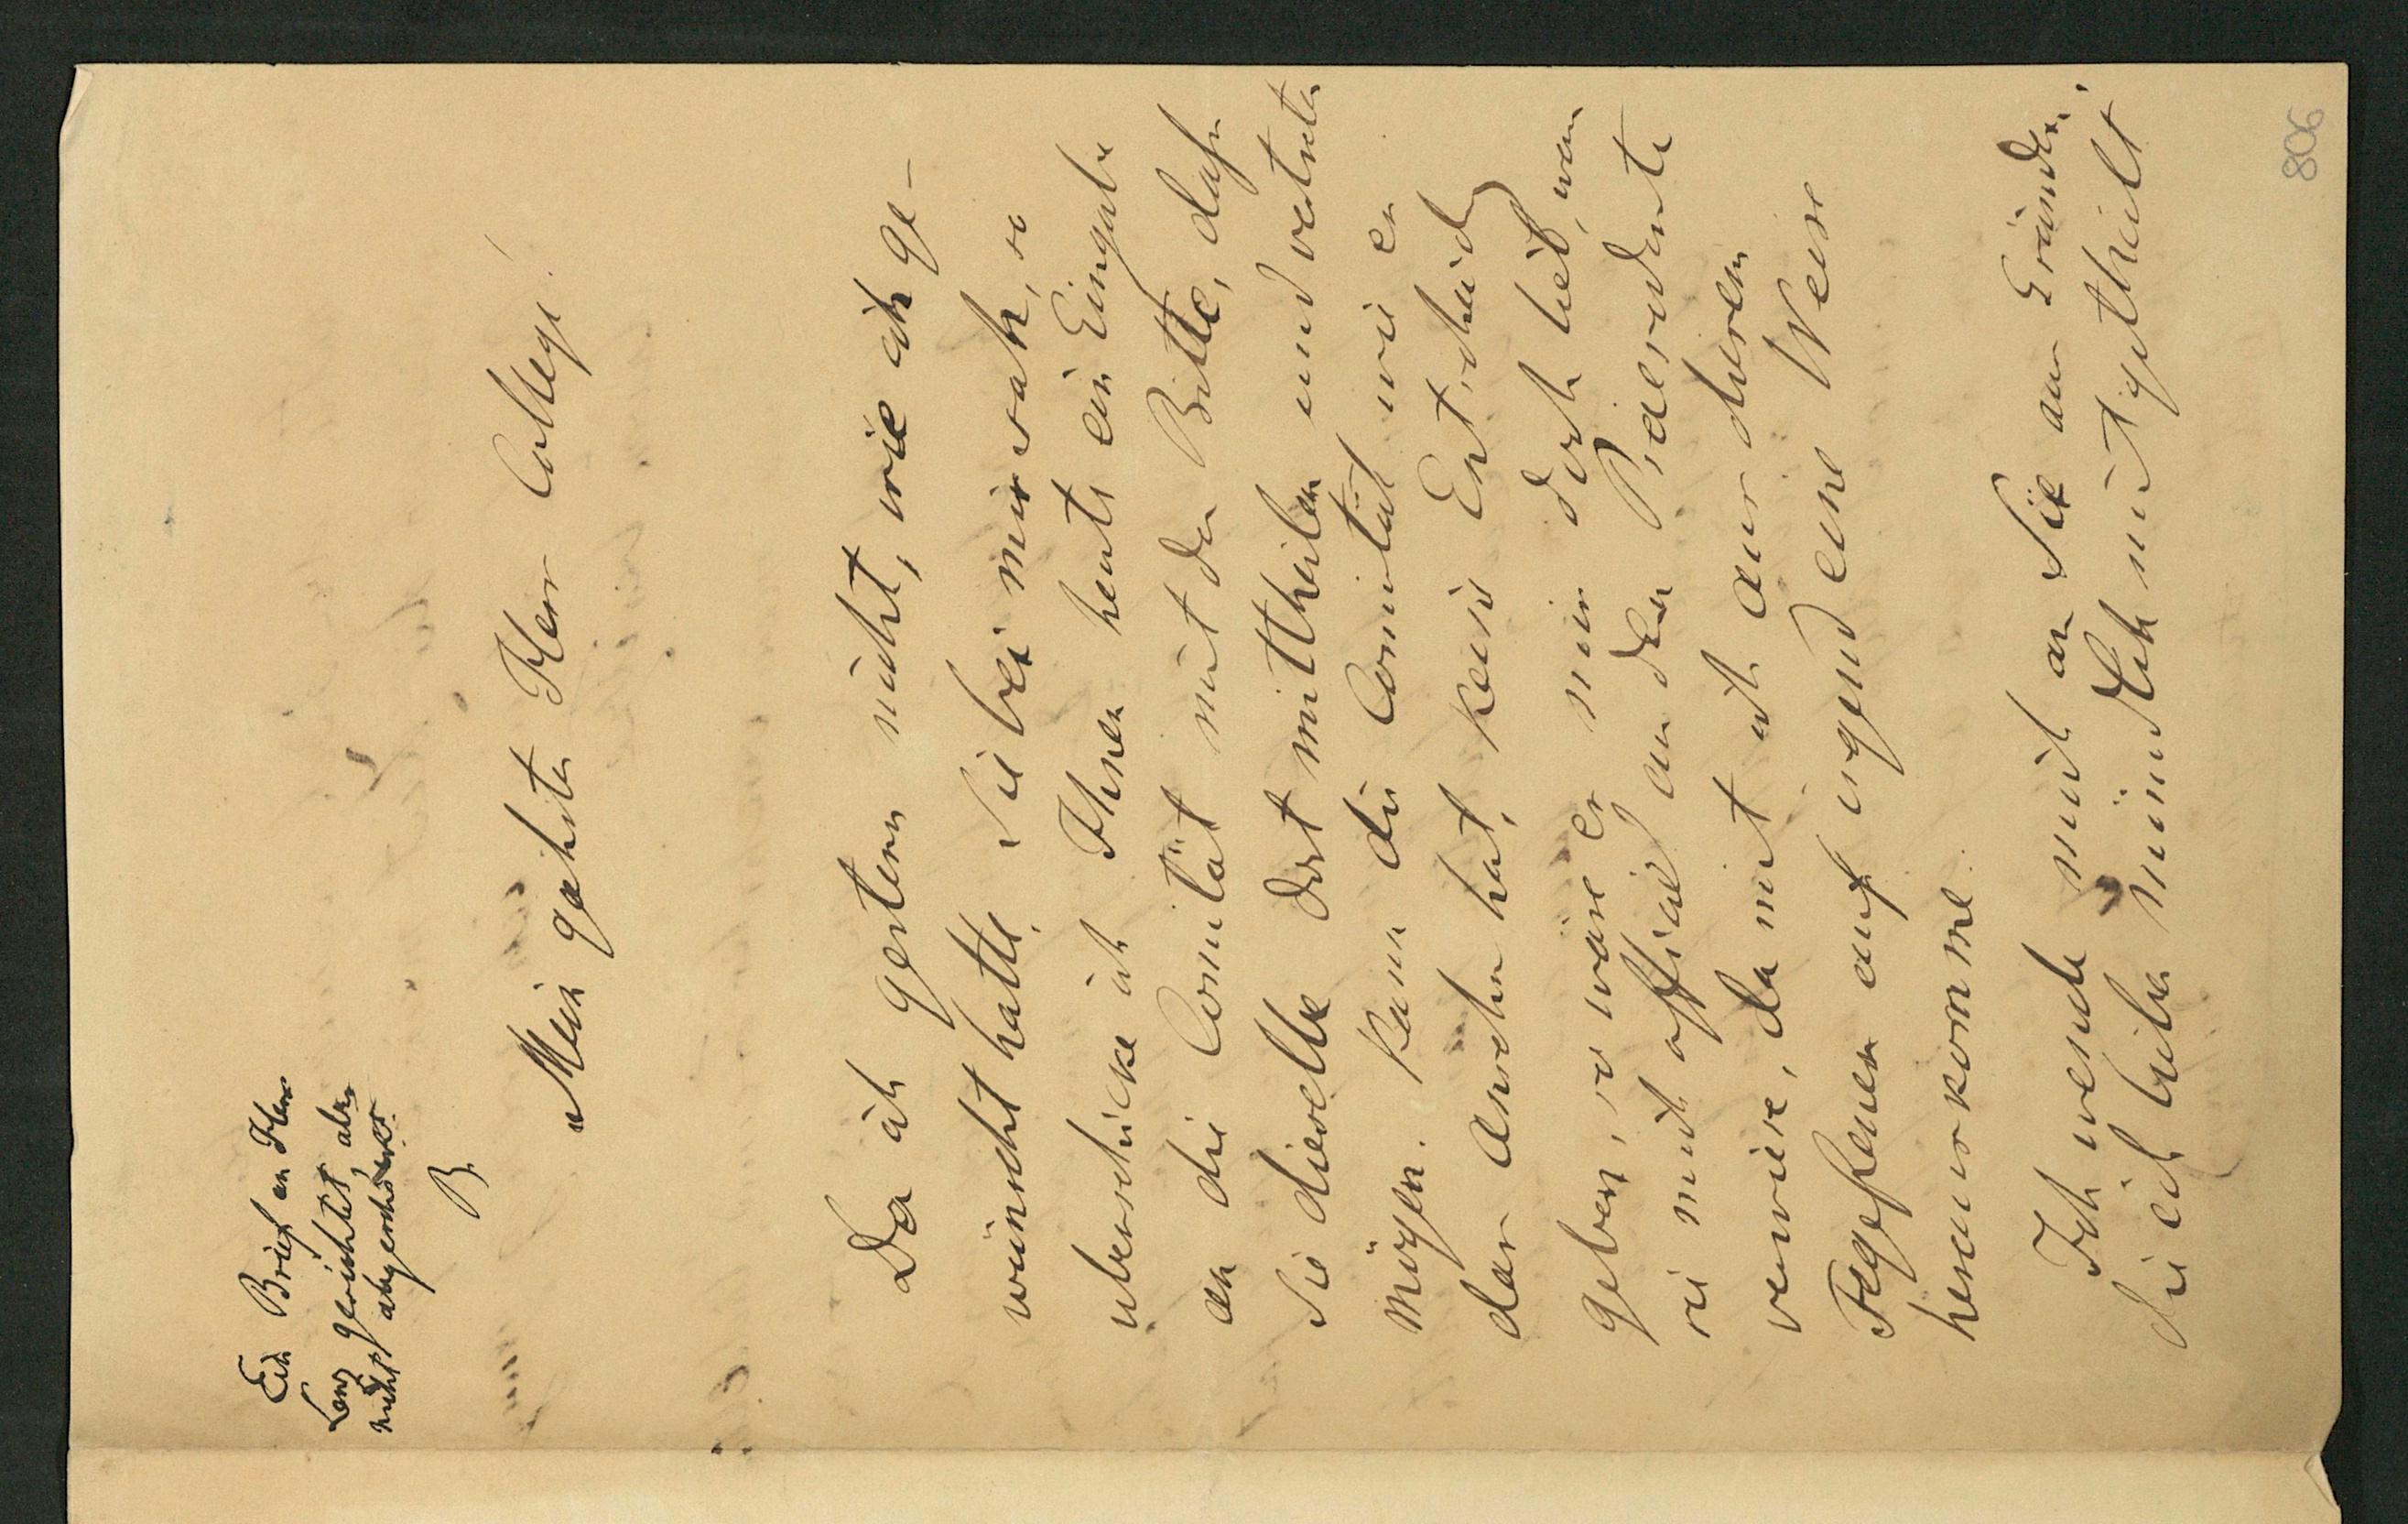 Ein Brief an Herrn
Lang gerichtet aber
nicht abgeschickt
B.
Mein geehrter Herr College!
Da ich gestern nicht, wie ich ge-
wünscht hatte, Sie bei mir sah, so
überschicke ich Ihnen heute die Eingabe
an die Comität mit der Bitte, dass
Sie dieselbe dort mittheilen und vertreten
mögen. Kann die Comität wie er
den Anschein hat, keine Entscheidg
geben, so wäre es mir doch lieb, wenn
sie mich officiell an den Praesidente
verwiese, damit ich aus diesem
Fegefeuer auf irgend eine Weise
herauskomme.
Ich wende mich an Sie aus Gründen,
die ich Ihnen mündlich mitgetheilt
806